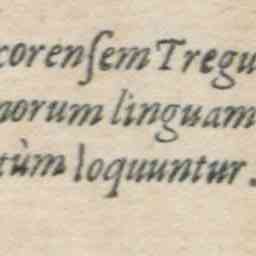 corenſem Tregu
norum linguam
tùm loquuntur.